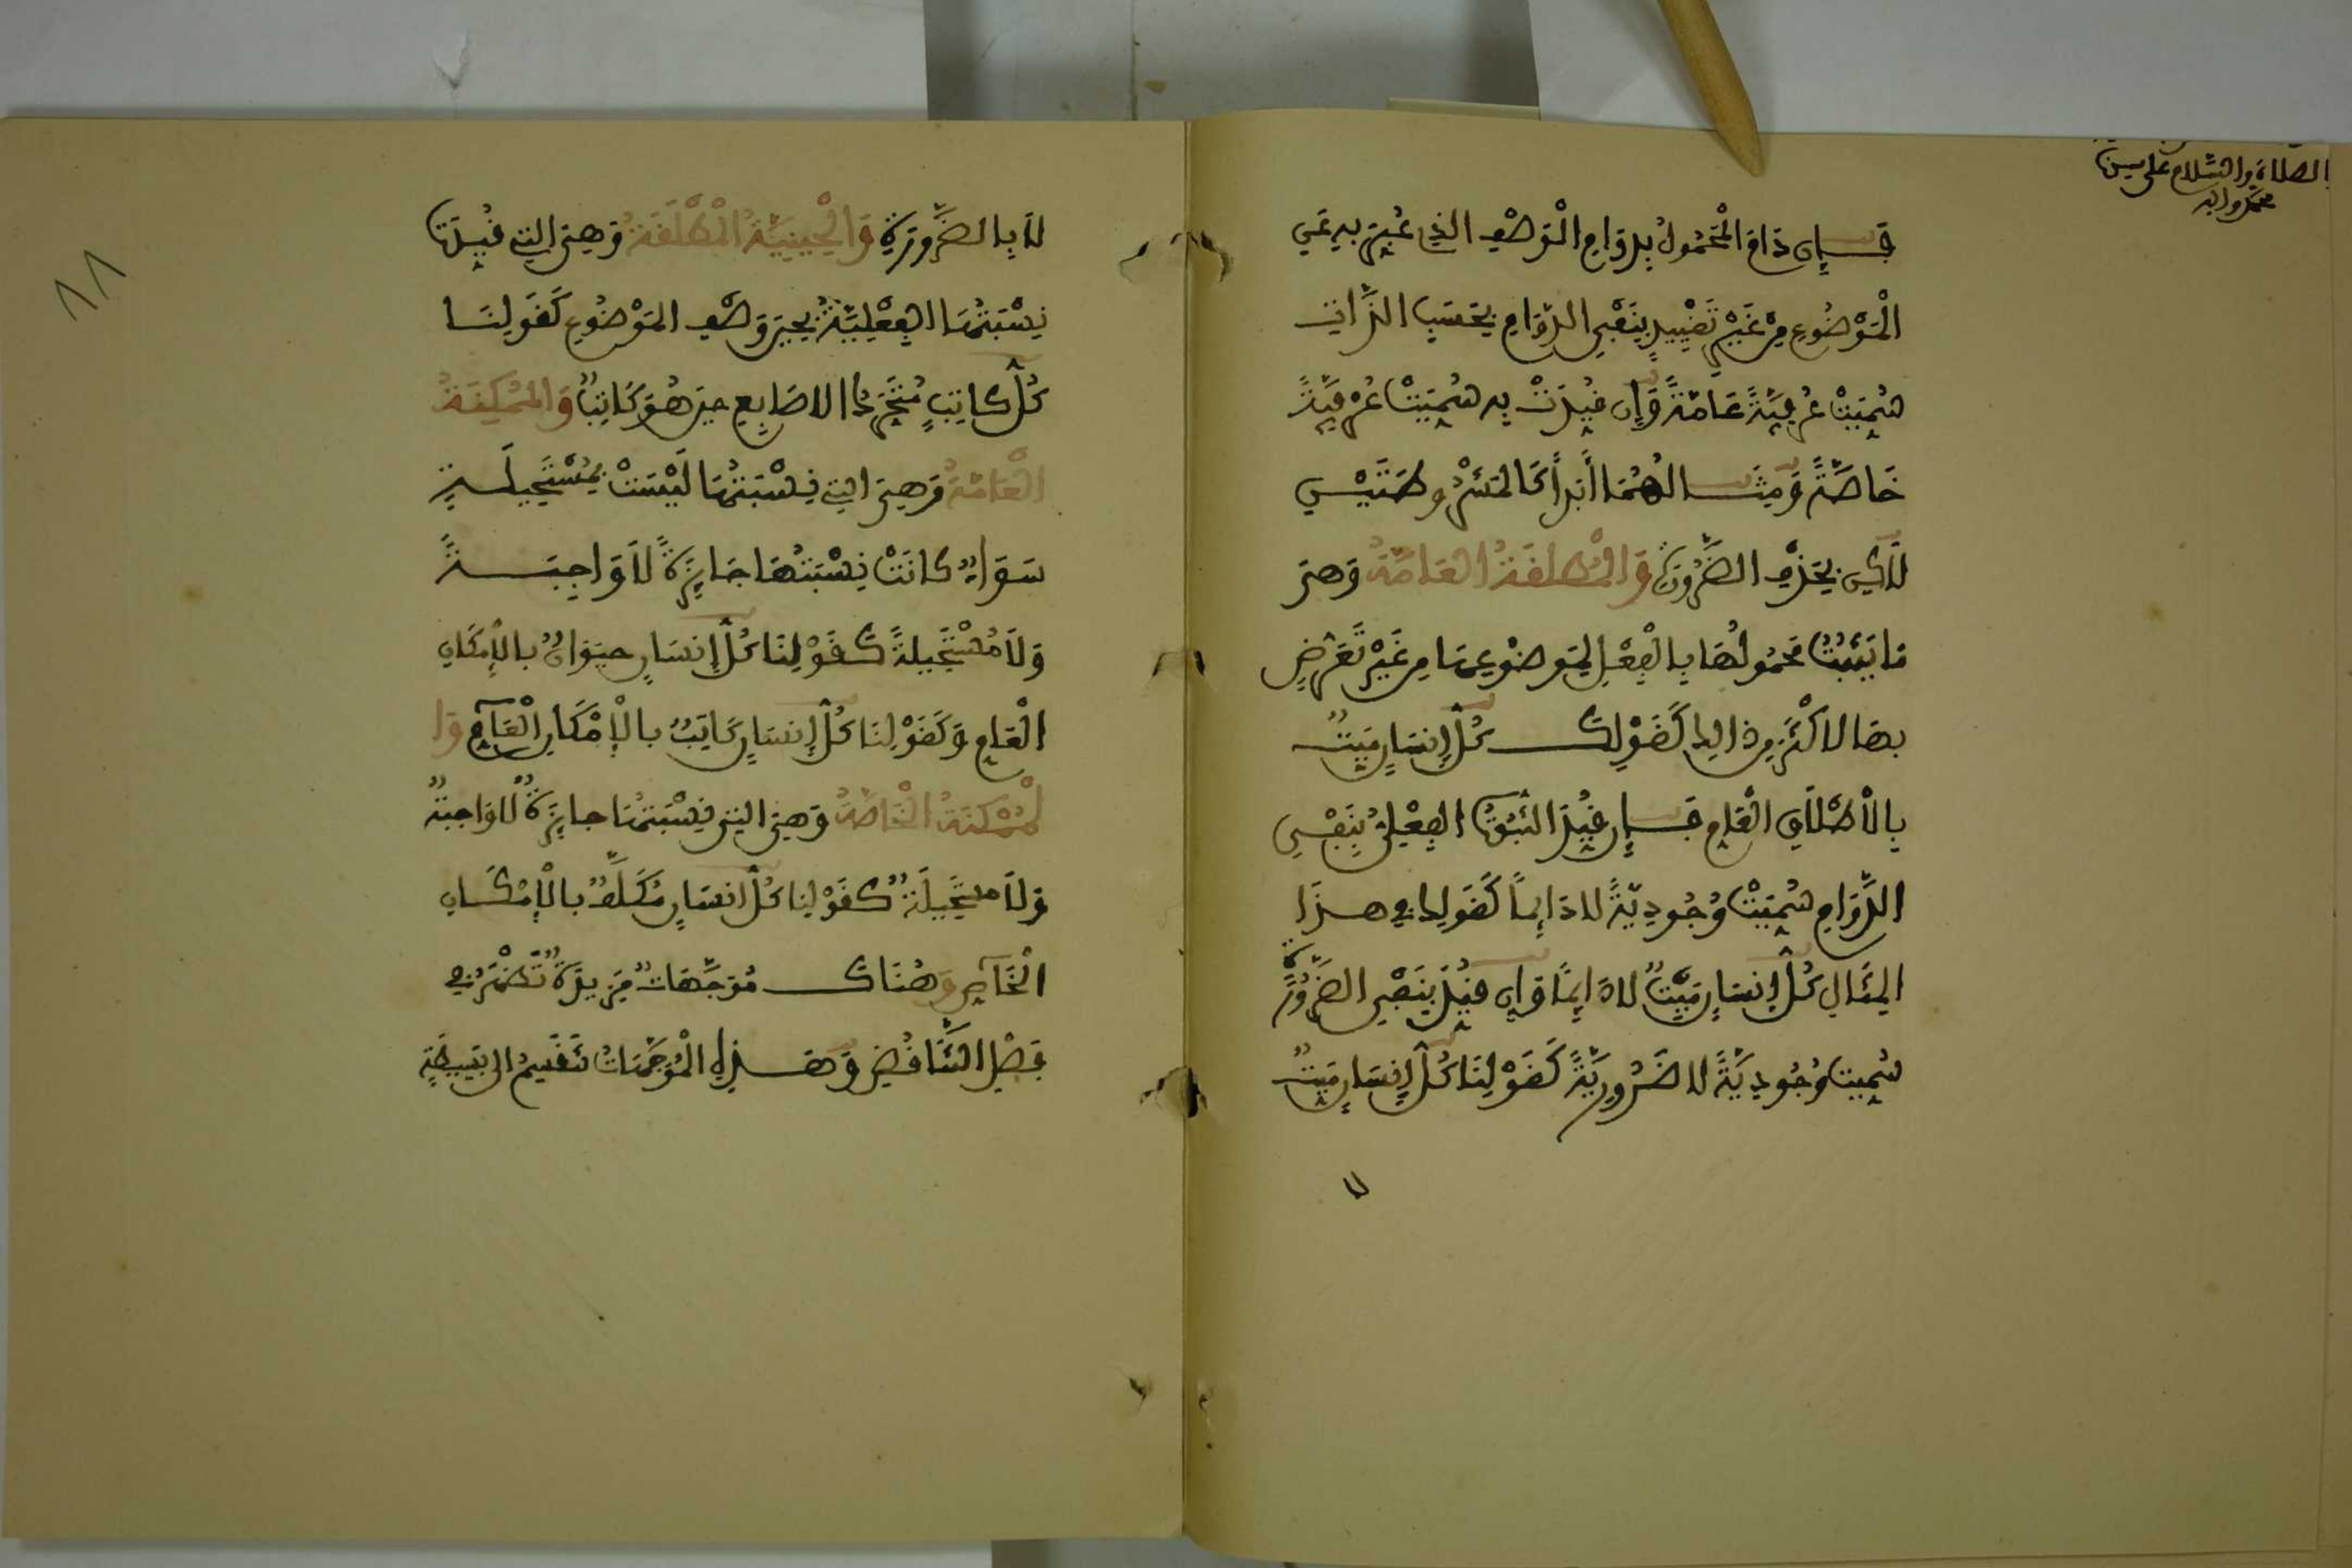 الصلاة والسلام على سيدنا
محمد وآله
فَإِن دَامَ الْمَحْمُولُ بِدَوَامِ الْوَصْفِ الذِي عُبِّرَ بِهِ عَنِ
الْمَوْضُوعِ مِنْ غَيْرِ تَقْيِيدٍ بِنَفْيِ الدَّوَامِ بِحَسَبِ الذَّاتِ
سُمِّيَتْ عُرْفِيَّةً عَامَّةً وَإِن قُيِّدَتْ بِهِ سُمِّيَتْ عُرْفِيَّةً
خَاصَّةً وَمِثَالُهُمَا أَبَداً كَالْمَشْرُوطَتَيْنِ
لَاكِن بِحَذْفِ الضَّرُورَةِ وَالْمُطْلَقَةُ الْعَامَّةُ وَهِيَ
مَا يَثْبُتُ مَحْمُولُهَا بِالْفِعْلِ لِمَوْضُوعِهَا مِنْ غَيْرِ تَعَرُّضٍ
بِهَا لِأَكْثَرَ مِن ذَالِكَ كَقَوْلِكَ كُلُّ إِنسَانٍ مَيِّتٌ
بِالْإِطْلَاقِ الْعَامِ فَإِن قُيِّدَ الثُّبُوتُ الْفِعْلِيُّ بِنَفْيِ
الدَّوَامِ سُمِّيَتْ وُجُودِيَّةً لَا دَائِماً كَقَوْلِكَ فِي هَذَا
الْمِثَالِ كُلُّ إِنسَانٍ مَيِّتٌ لَا دَائِماً وَإِن قُيِّدَ بِنَفْيِ الضَّرُورَةِ
سُمِّيَت وُجُودِيَّةً لَا ضَرُورِيَّةً كَقَوْلِنَا كُلُّ إِنسَانٍ مَيِّتٌ
لَا بِالضَّرُورَةِ وَالْحِينِيَّةُ الْمُطْلَقَةُ وَهِيَ التِي قُيِّدَتْ
نِسْبَتُهَا الْفِعْلِيَّةُ بِحِينِ وَصْفِ الْمَوْضُوعِ كَقَوْلِنَا
كُلُّ كَاتِبٍ مُتَحَرِّكُ الاصَابِعِ حِينَ هُوَ كَاتِبٌ وَالْمُمْكِنَةُ
الْعَامَّةُ وَهِيَ التِي نِسْبَتُهَا لَيْسَتْ بِمُسْتَحِيلَةٍ
سَوَاءٌ كَانَتْ نِسْبَتُهَا جَائِزَةً لَا وَاجِبَةً
وَلَا مُسْتَحِيلَةً كَقَوْلِنَا كُلُّ إِنسَانٍ حَيَوَانٌ بِالْإِمْكَانِ
الْعَامِ وَكَقَوْلِنَا كُلُّ إِنسَانٍ كَاتِبٌ بِالْإِمْكَانِ الْعَامِّ وَا
لْمُمْكِنَةُ الْخَاصَّةُ وَهِيَ التِي نِسْبَتُهَا جَائِزَةٌ لَا وَاجِبَةٌ
وَلَا مُسْتَحِيلَةٌ كَقَوْلِنَا كُلُّ إِنسَانٍ مُكَلَّفٌ بِالْإِمْكَانِ
الْخَاصِّ وَهُنَاكَ مُوَجَّهَاتٌ مَزِيدَةٌ تَظْهَرُ فِي
فَصْلِ التَّنَاقُضِ وَهَذِهِ الْمُوَجَّهَاتُ تَنقَسِمُ إِلَى بَسِيطَةٍ